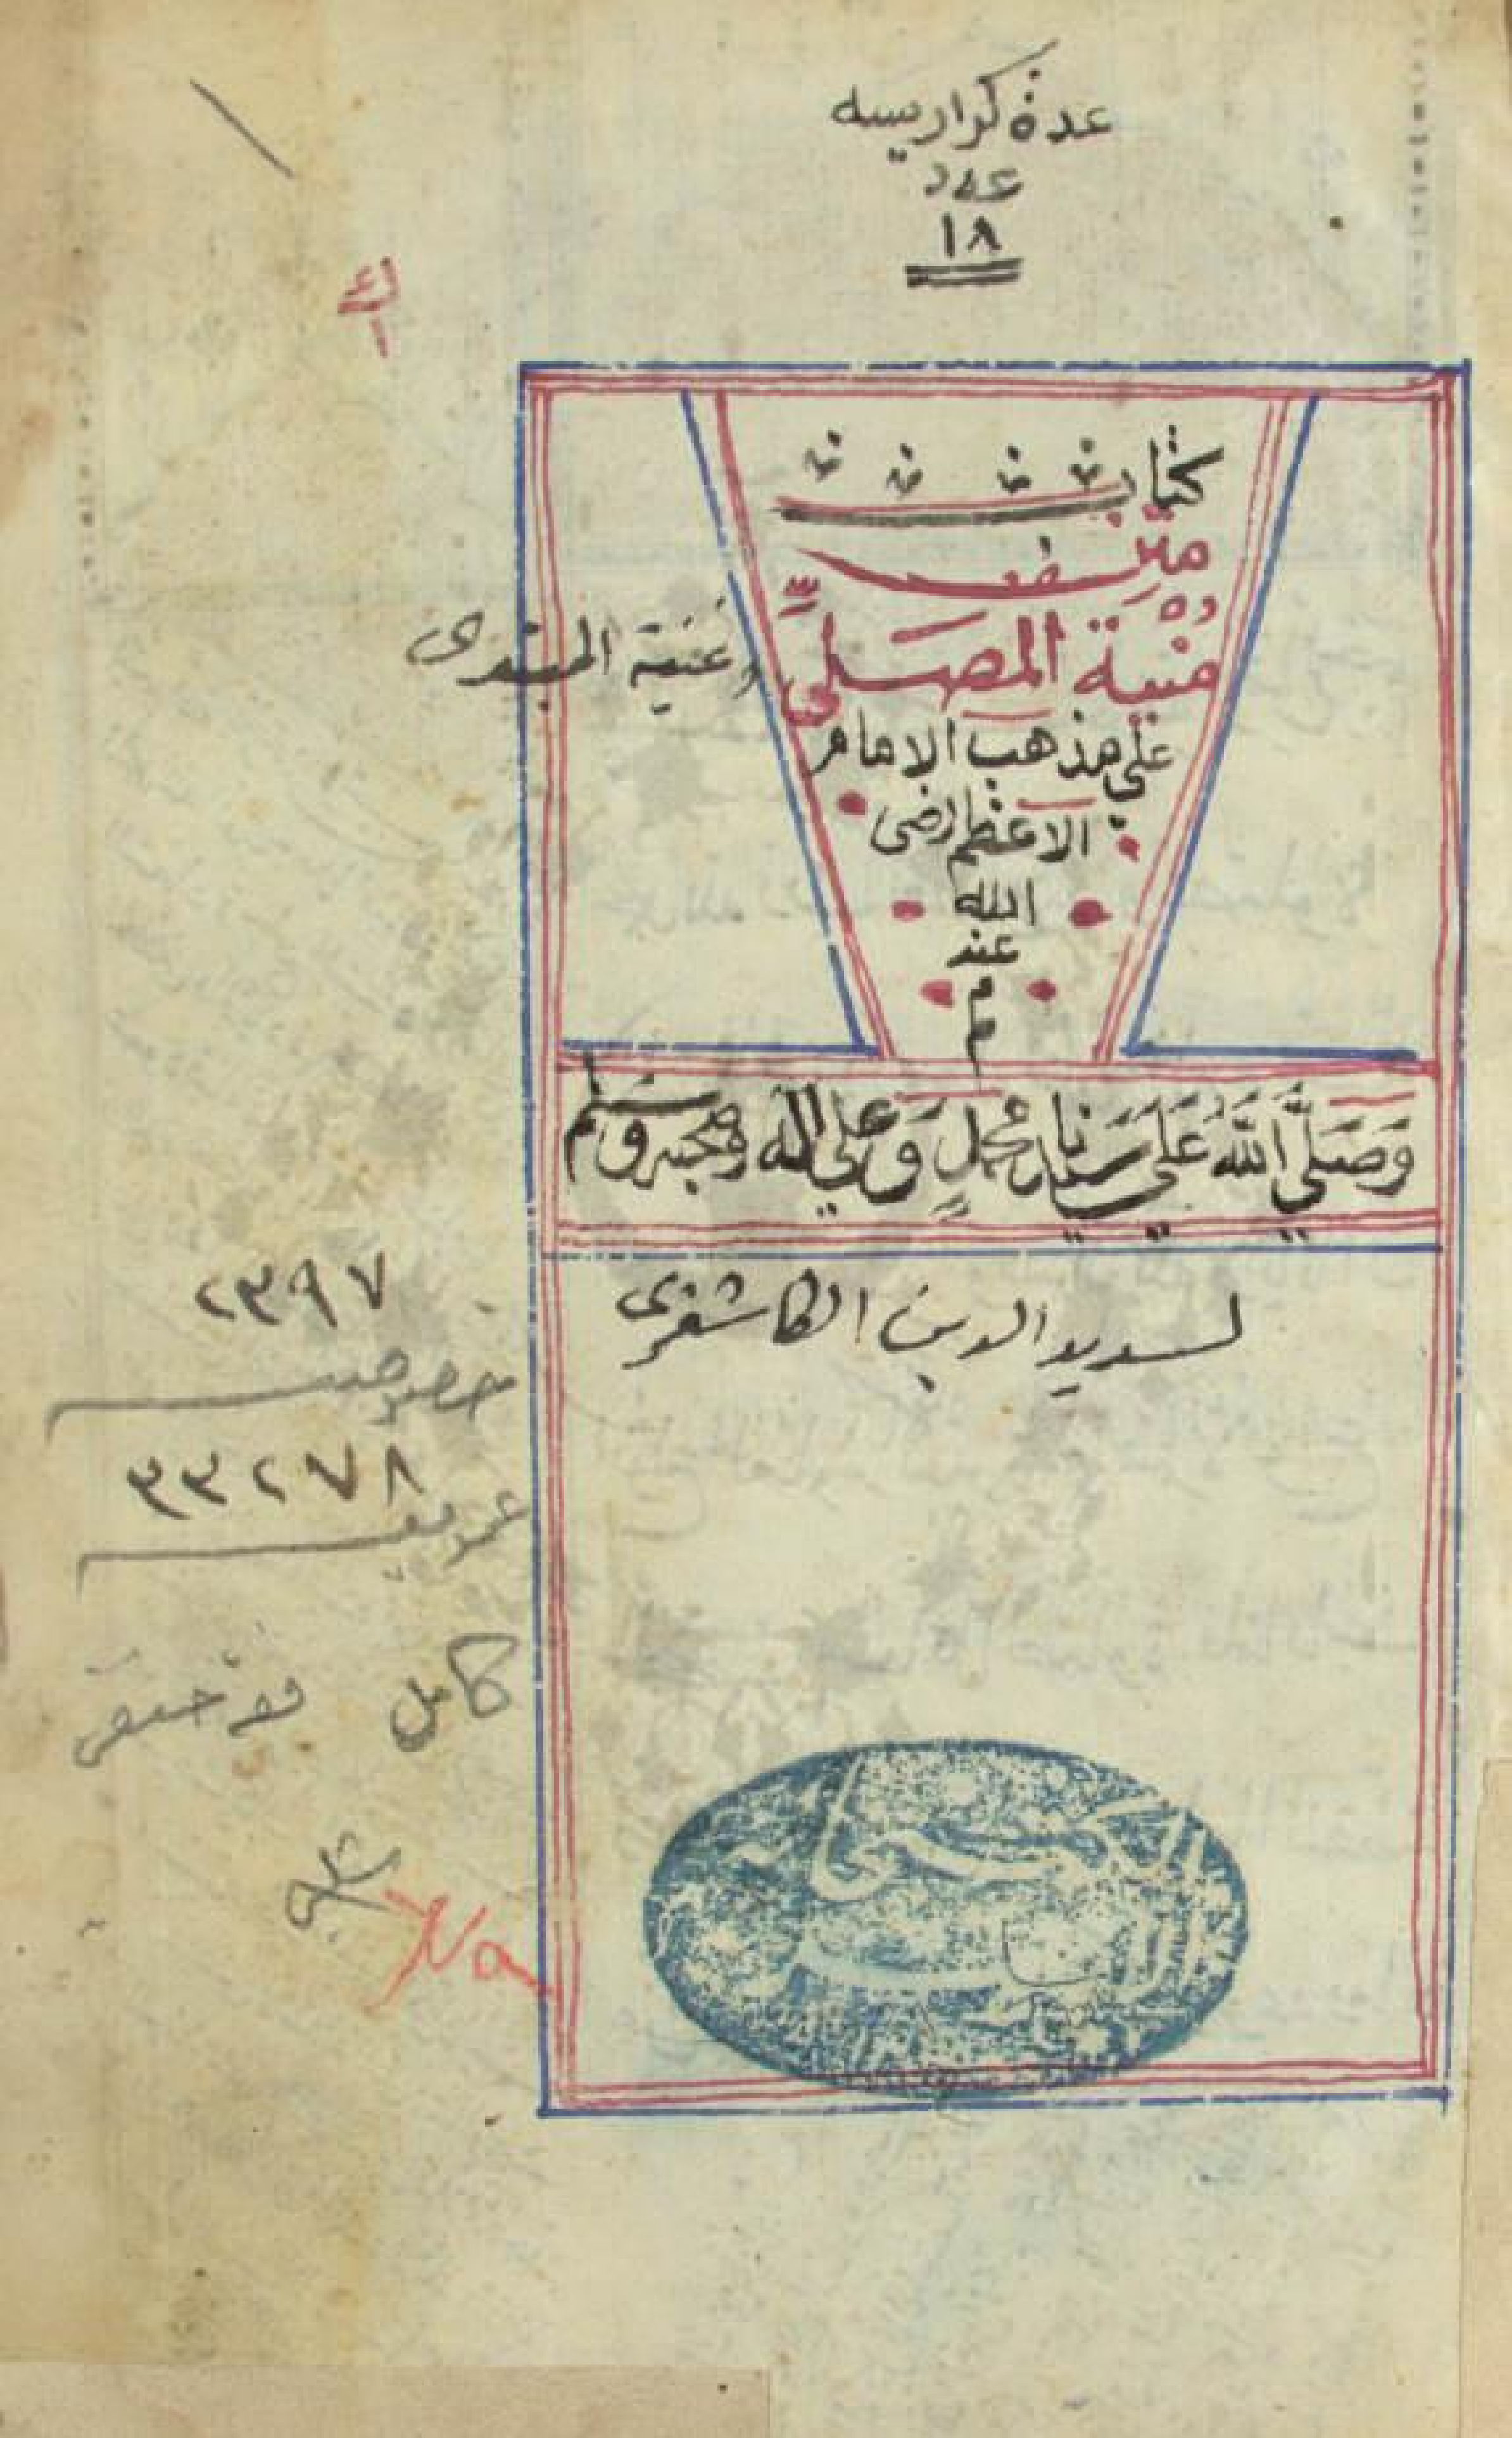 عدة كراريسه
عدد
١٨
كتاب
متن
منية المصلي
وغنية المبتدى
على مذهب الامام
الاعظم رضى
الله
عنه
م
م
وَصَلَّي اللَّهُ عَلَي سَيدنا محمدٍ وَعلي اله وصحبه وسلم
لسديد الدين الكاشغرى
٢٣٩٧
خصوصية
٣٣٢٧٨
عمومية
كامل
فقه حنفى